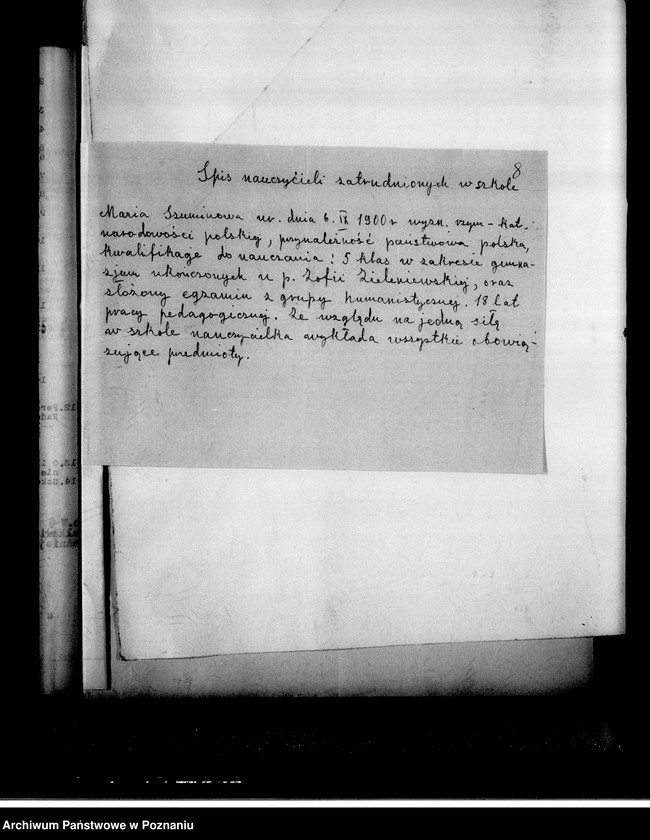 8
Spis nauczycieli zatrudnionych w szkole
Maria Szuminowa ur. dnia 6. IX 1900 r wyzn. rzym-kat.
narodowości polskiej, przynależność państwowa polska,
kwalifikacje do nauczania: 5 klas w zakresie gimna-
zjum ukończonych u p. Zofii Zieleniewskiej, oraz
złożony egzamin z grupy humanistycznej. 18 lat
pracy pedagogicznej. Ze względu na jedną siłę
w szkole nauczycielka wykłada wszystkie obowią-
zujące przedmioty.
Archiwum Państwowe w Poznaniu